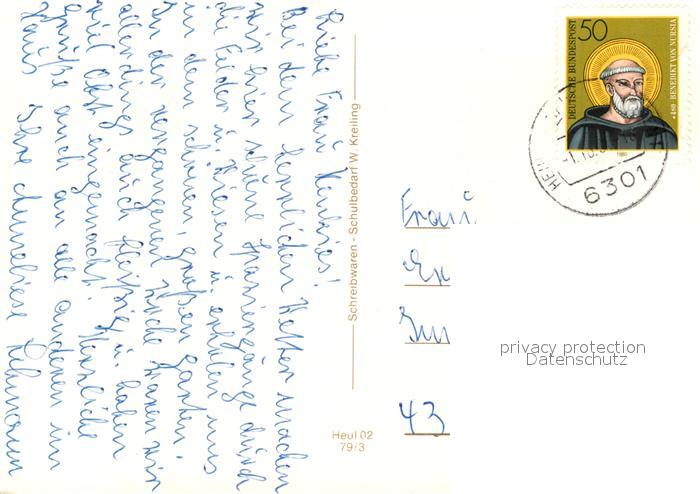 Liebe Frau
Bei dem herrlichen Wetter machen
wir hier schöne Spaziergänge durch
die Felder u. Wiesen u. erholen uns
in dem schönen, großen Garten.
In der vergangenen Woche waren wir
allerdings auch fleißig u. haben
viel Obst eingemacht. Herzliche
Grüße auch an alle anderen im
Haus Ihre Anneliese
Schreibwaren - Schulbedarf W. Kreiling
Heul 02
79/3
DEUTSCHE BUNDESPOST
50
*480 · BENEDIKT VON NURSIA
1980
6301
Frau
43
privacy protection
Datenschutz